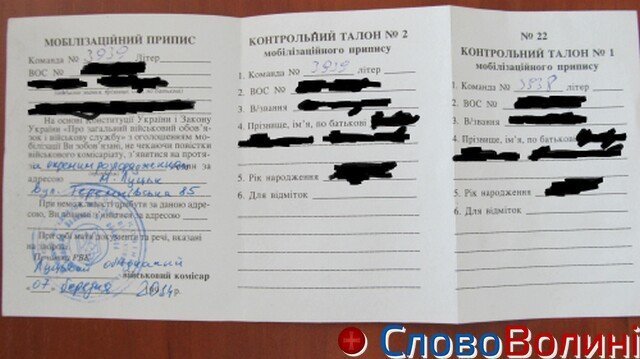 МОБІЛІЗАЦІЙНИЙ ПРИПИС
Команда № 3939 Літер
ВОС №
На основі Конституції України і Закону
України «Про загальний військовий обов'я-
зок і військову службу» з оголошенням мо-
білізації Ви зобов'язані, не чекаючи повістки
військового комісаріату, з'явитися на протя-
за окремим розпорядженням
адресою м. Луцьк
вул. Теремнівська 85
При неможливості прибути за даною адре-
сою, Ви повинні з'явитися за адресою
При собі мати документи та речі, вказані
на звороті.
Печатка РВК
Луцький об'єднаний
військовий комісар
07 березня 2014 р.
КОНТРОЛЬНИЙ ТАЛОН № 2
мобілізаційного припису
1. Команда № 3939 літер
2. ВОС №
3. В/звання
4. Прізвище, ім'я, по батькові
5. Рік народження
6. Для відміток
№ 22
КОНТРОЛЬНИЙ ТАЛОН № 1
мобілізаційного припису
1. Команда № літер
2. ВОС №
3. В/звання
4. Прізвище, ім'я, по батькові
5. Рік народження
6. Для відміток
СловоВолині